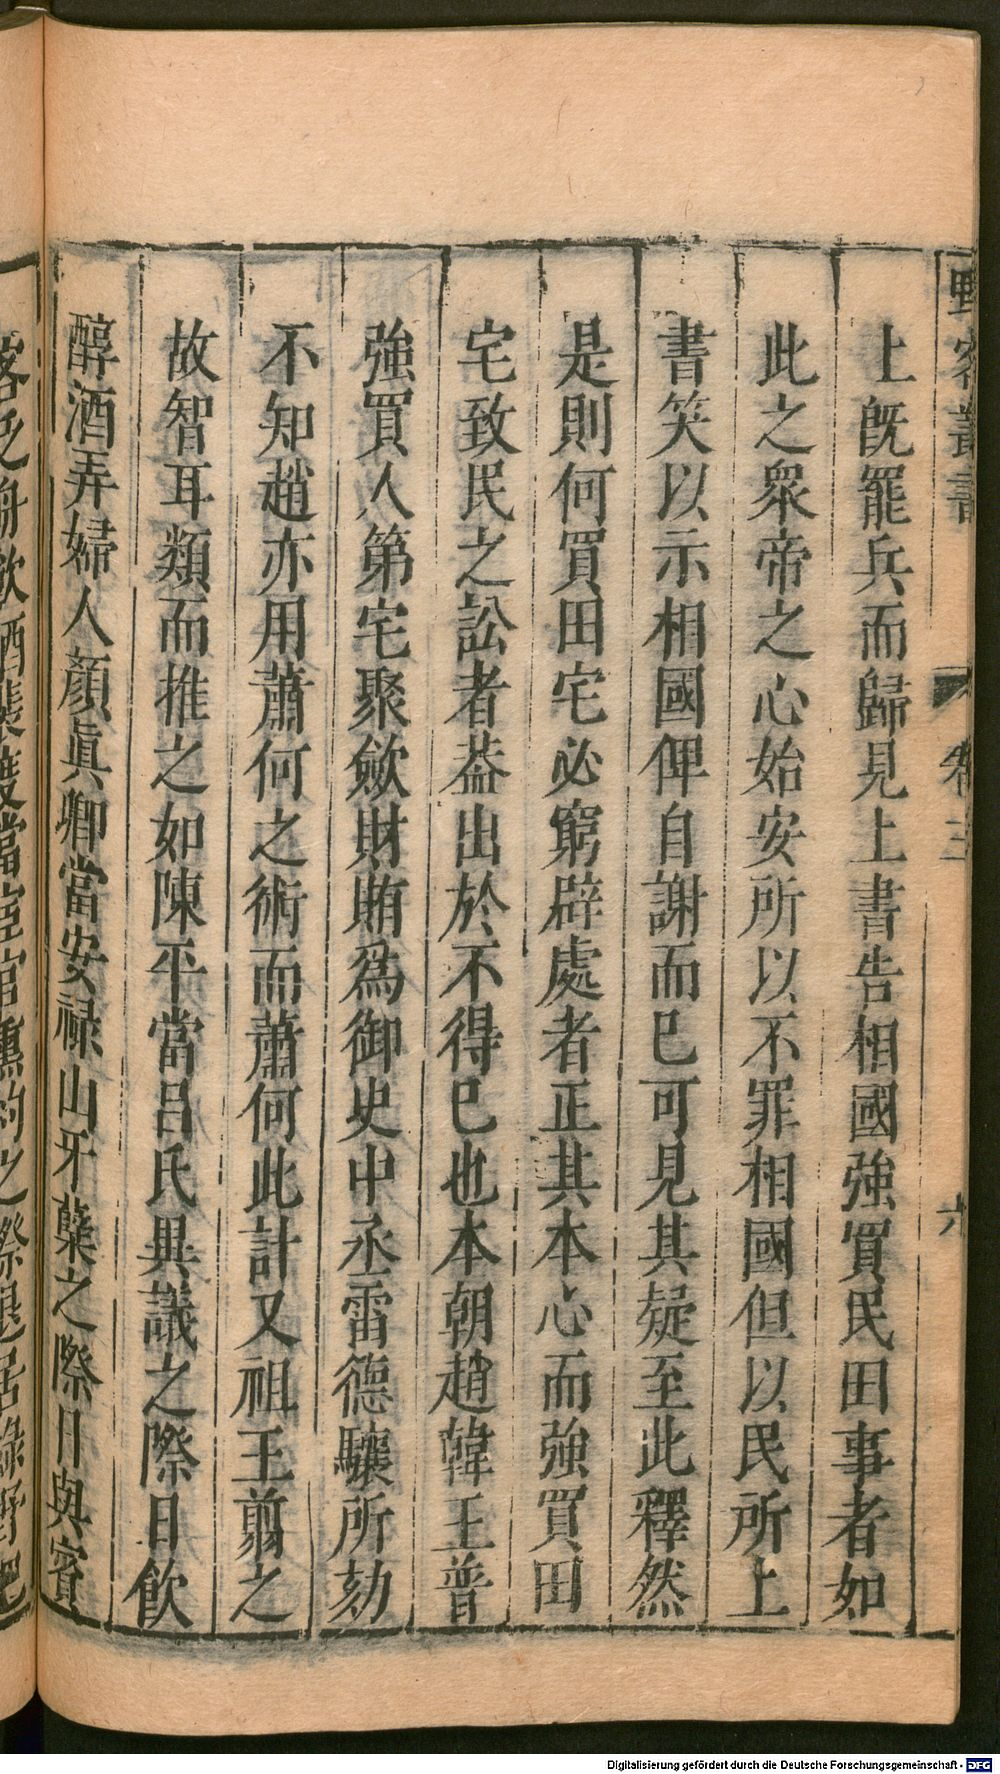 野客叢書 卷三 六
上旣罷兵而歸見上書告相國強買民田事者如
此之衆帝之心始安所以不罪相國但以民所上
書笑以示相國俾自謝而已可見其疑至此釋然
是則何買田宅必窮辟處者正其本心而強買田
宅致民之訟者葢出於不得已也本朝趙韓王普
強買人第宅聚斂財賄爲御史中丞雷德驤所劾
不知趙亦用蕭何之術而蕭何此計又祖王翦之
故智耳類而推之如陳平當呂氏異議之際日飲
醇酒弄婦人顏眞卿當安祿山牙蘖之際日與賓
客泛舟飲酒裴度當宦官熏灼之際退居綠野把
Digitalisierung gefördert durch die Deutsche Forschungsgemeinschaft - DFG